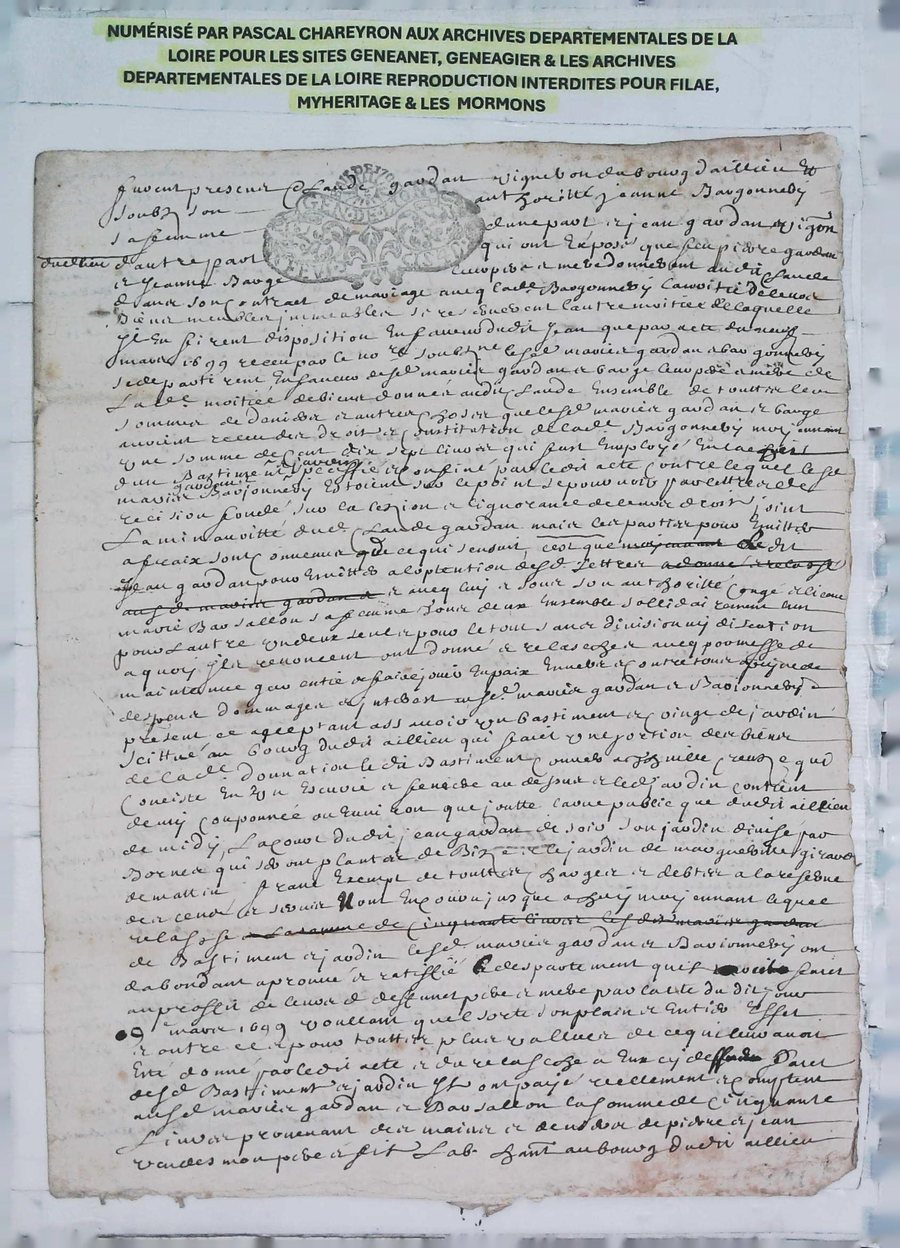 NUMÉRISÉ PAR PASCAL CHAREYRON AUX ARCHIVES DEPARTEMENTALES DE LA
LOIRE POUR LES SITES GENEANET, GENEAGIER & LES ARCHIVES
DEPARTEMENTALES DE LA LOIRE REPRODUCTION INTERDITES POUR FILAE,
MYHERITAGE & LES MORMONS
furent presens Claude gardan vigneron du bourg daillieu et
soubz son authoritté jeanne Bargonnevy
sa femme dune part et jean gardan vigron
dudit lieu dautre part qui ont Exposé que feu pierre gardan
et Jeanne Barge leur pere et mere donnerent audit Claude
dans son Contract de mariage avecq lade Bargonnevy la moitié de leurs
Biens meubles immeubles se reserverent lautre moitié de laquelle
jls En firent disposition En faveur dudit Jean que par acte du neuf
mars 1699 receu par le nore soubzne lesd mariés gardan et bargonnevy
se departirent En faveur desd mariés gardan et barge leur pere et mere de
Lade moitié de biens donnés audit Claude Ensemble de touttes les
sommes de deniers et autres Choses que lesd mariés gardan et barge
avoient receu des droits et Constitution de lade Bargonnevy moyennant
une somme de Cent dix sept livres qui fust Employé En
dun Bastiment par le dit acte contre lequel lesd
mariés Bargonnevy Estoient sur le point se pourvoir par lettres de
recision fondé sur la lezion et lignorance de leurs droits joint
La minauritté dud Claude gardan mais les parties pour Evitter
a fraix sont Convenus de ce qui sensuit, cest que moyennant Ledit
jean gardan pour Evitter a lobtention desd Lettres a donné et relasché
auxd mariés gardan et avecq luy et soubz son authoritté Congé et licence
marie Barsallon sa femme tous deux Ensemble sollidairement lun
pour Lautre un deux seul et pour le tout sans division ny discution
a quoy jls renoncent ont donné et relaschés avecq promesse de
maintenir garentir et faire jouir En paix Envers et contre tous a peine de
despens dommages et intherest auxd mariés gardan et Bargonnevy
present et aceptant assavoir un bastiment et de jardin
scittué au bourg dudit aillieu qui faict une portion des biens
de lade donnation le dit Bastiment qui
Consiste En un Escurie et feniere au dessus et led jardin contient
demy couponnée ou Environ que joutte la rue publicque dudit aillieu
de midy, La cour dudit jean gardan de soir son jardin divisé par
Bornes qui seront plantés de Bize et le jardin de margueritte giraud
de mattin franc Exempt de touttes Charges et debtes a la reserve
des cens et servis Non Encouru jusques a huy moyennant lequel
relasche la somme de Cinquante livres lesdits mariés gardan
de Bastiment et jardin lesd mariés gardan et Bargonnevy ont
dabondant aprouvé et rattiffié le despartement quils faict
au proffit de leurs desfunct pere et mere par lacte du dit jour
09 mars 1699 voullant quil sorte son plain et Entier Effet
et outre ce et pour touttes plus vallues de ce qui leur avoit
Esté donné par le dit acte et du relasche a Eux cy dessus faict
desd Bastiment et jardin jls ont payé reellement et Comptent
auxd mariés gardan et Barsallon la somme de Cinquante
Livres provenant des mains et deniers de pierre et jean
pere et fils Lab. hant au bourg dudit aillieu